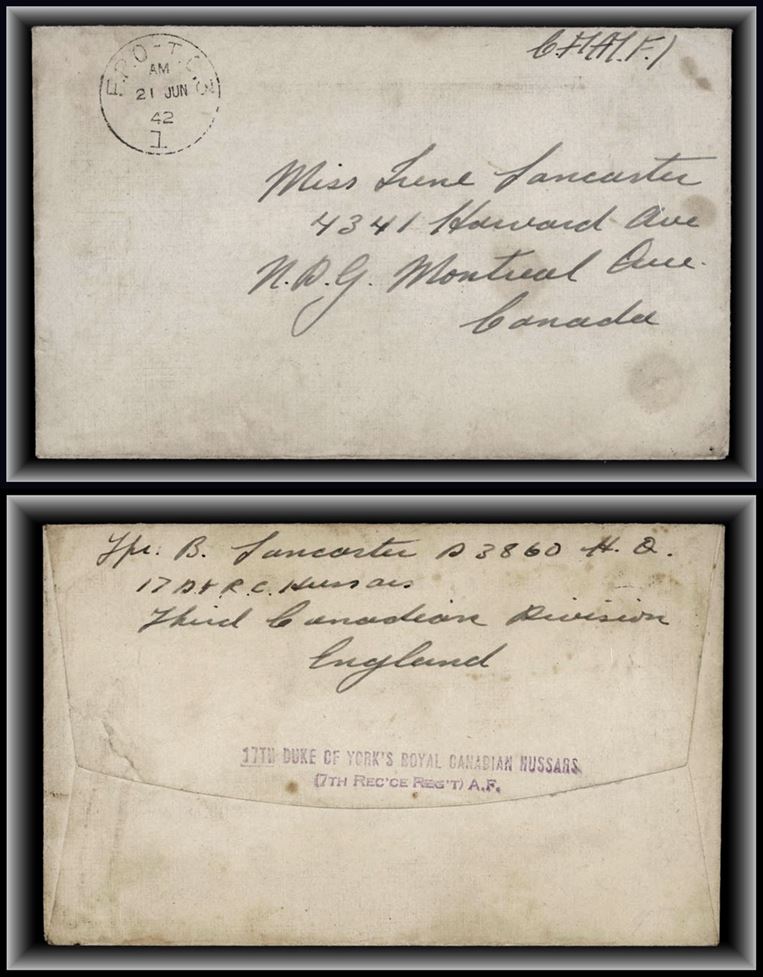 AM
21 JUN
42
1
Miss Irene Lancaster
4341 Harvard Ave
N.D.G. Montreal Que.
Canada
Tpr: B. Lancaster D3860 H.Q.
17 D Y R.C. Hussars
Third Canadian Division
England
17TH DUKE OF YORK'S ROYAL CANADIAN HUSSARS
(7TH REC'CE REG'T) A.F.